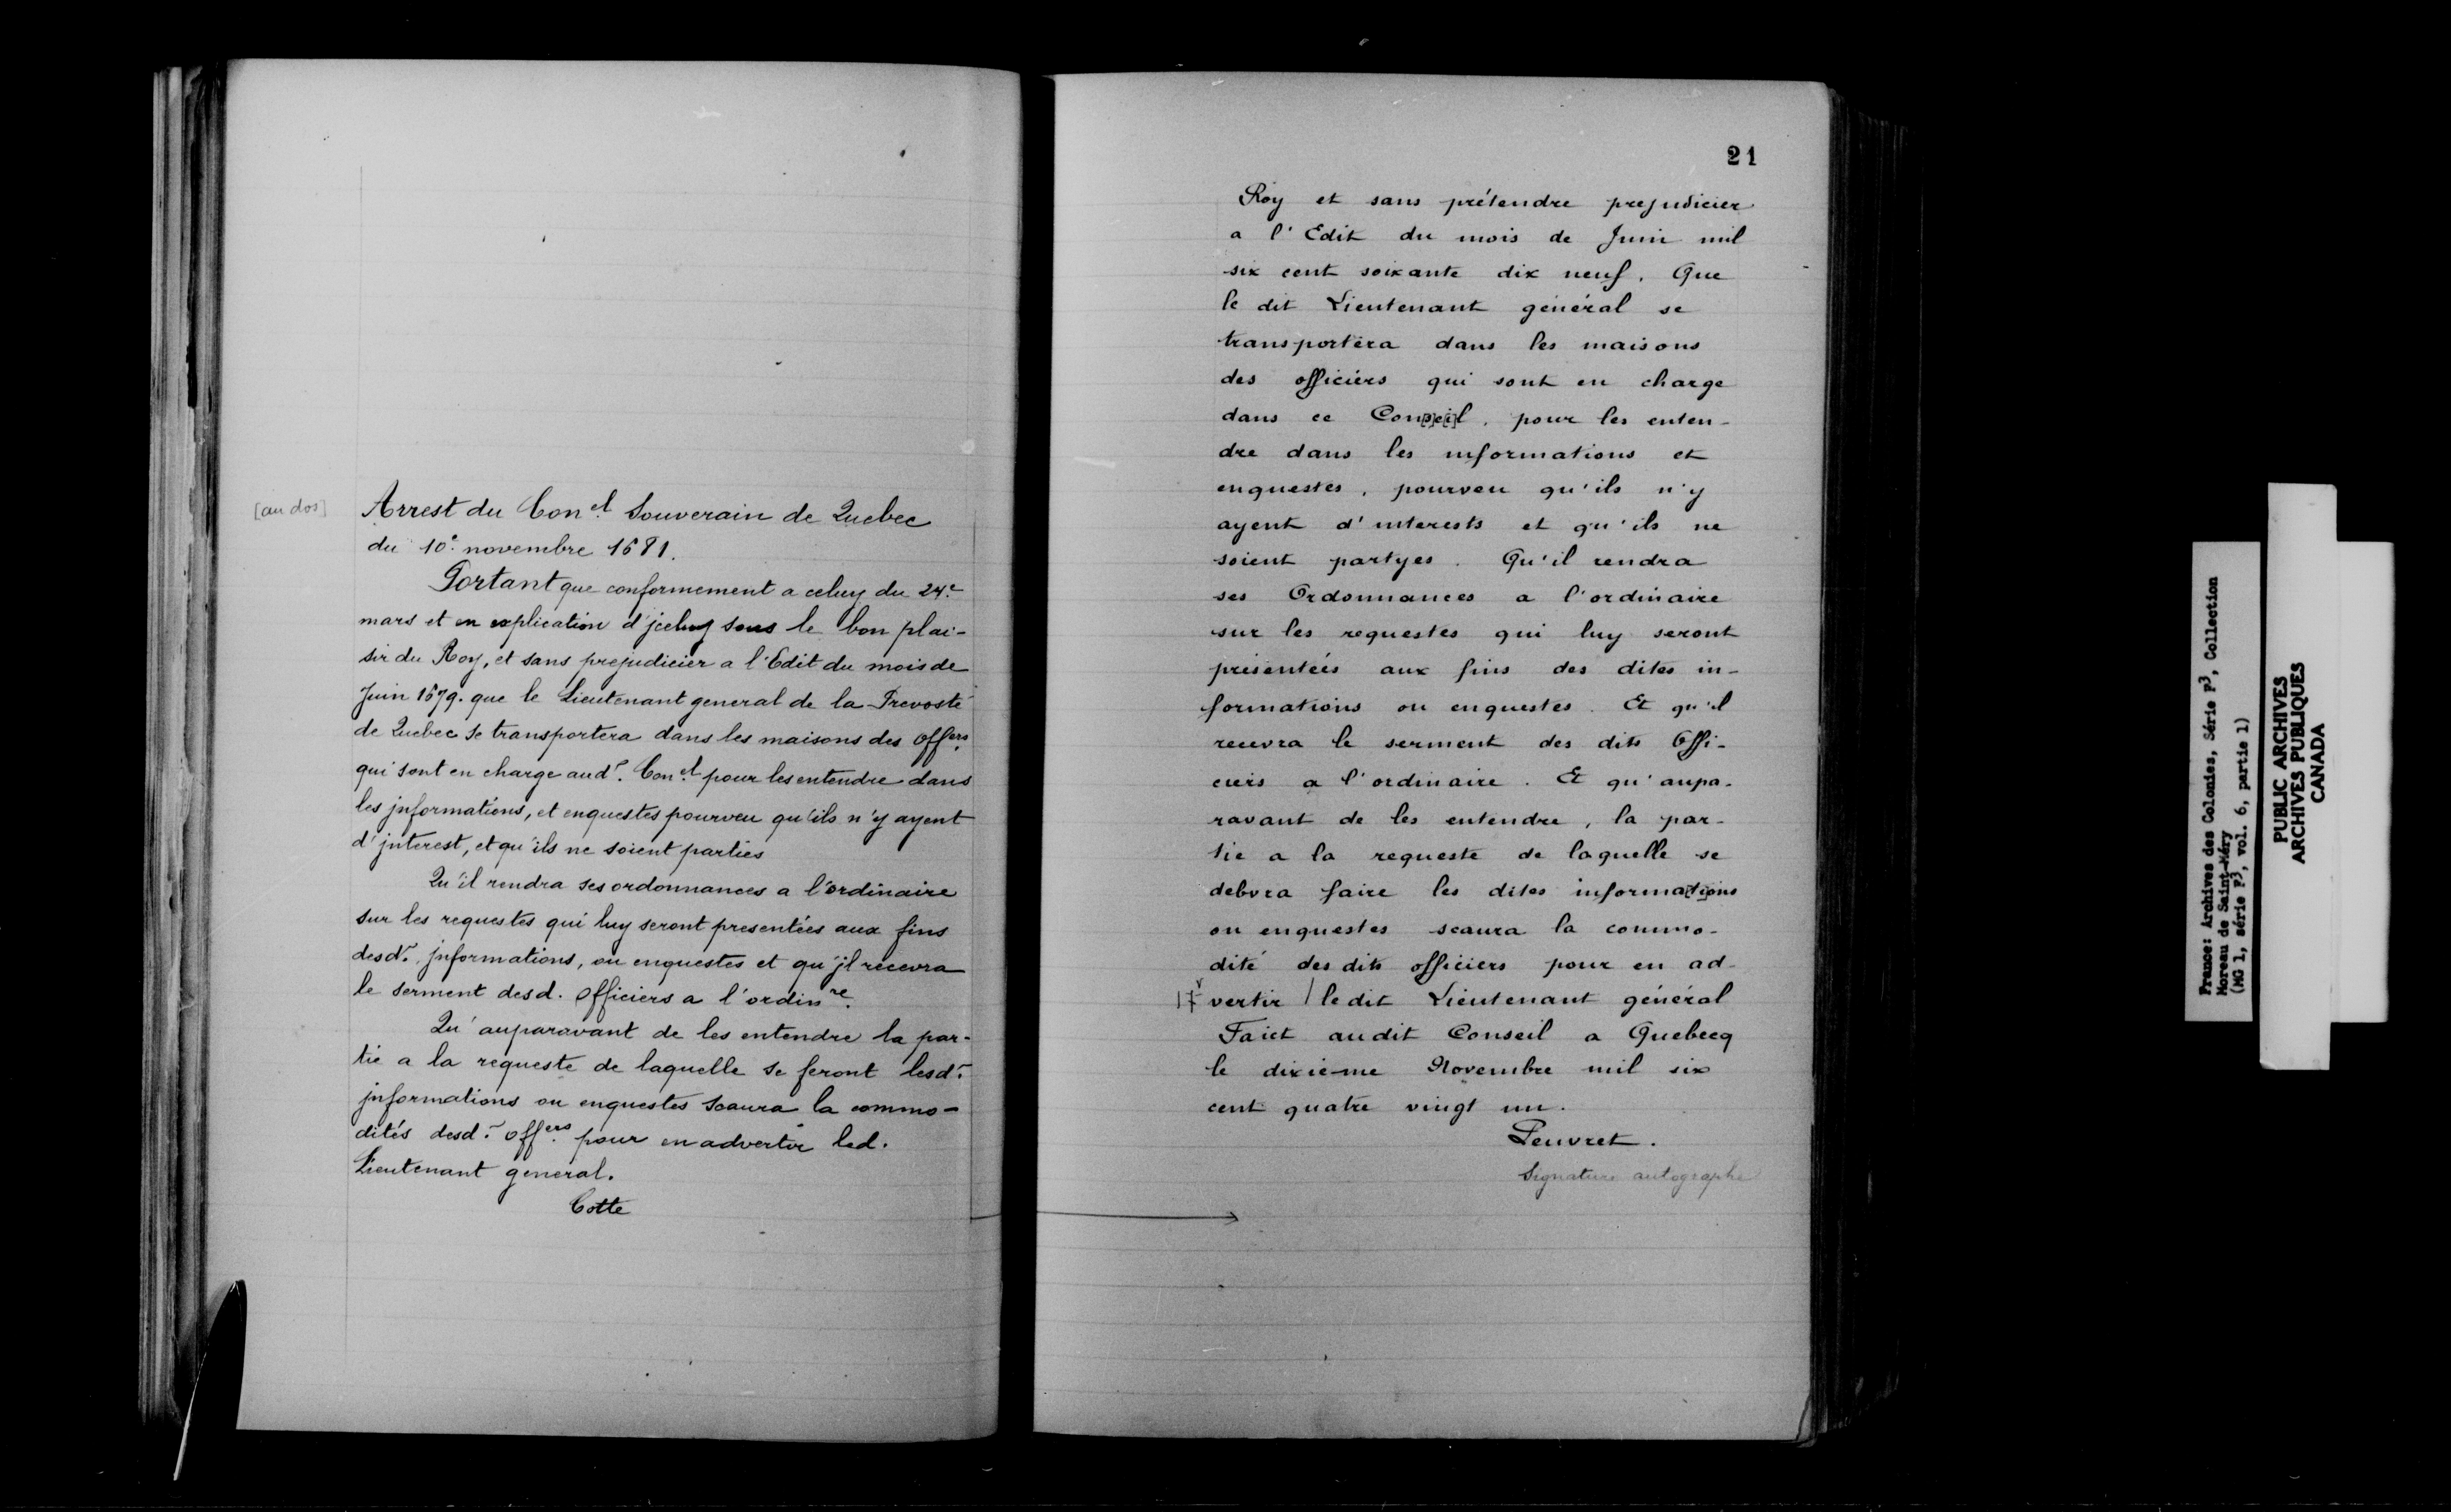 [au dos]
Arrest du Con.el Souverain de Quebec
du 10e. novembre 1681.
Portant que conformement a celuy du 24.e
mars et en explication d'jceluy sous le bon plai-
sir du Roy, et sans prejudicier a l'Edit du mois de
Juin 1679. que le Lieutenant general de la Prevosté
de Quebec se transportera dans les maisons des offers.
qui sont en charge aud.t Con.el pour les entendre dans
les jnformations, et enquestes pourveu qu'ils n'y ayent
d'jnterest, et qu'ils ne soient parties
Qu'il rendra ses ordonnances a l'ordinaire
sur les requestes qui luy seront presentées aux fins
desd.s jnformations, ou enquestes et qu'jl recevra
le serment desd. officiers a l'ordin.re
Qu'auparavant de les entendre la par-
tie a la requeste de laquelle se feront lesd.s
jnformations ou enquestes scaura la commo-
dités desd.s off.ers pour en advertir led.
Lieutenant general.
Cotte
21
Roy et sans prétendre prejudicier
a l'Edit du mois de Juin mil
six cent soixante dix neuf. Que
le dit Lieutenant général se
transportera dans les maisons
des officiers qui sont en charge
dans ce Con[s]e[i]l, pour les enten-
dre dans les informations et
enquestes, pourveu qu'ils n'y
ayent d'interests et qu'ils ne
soient partyes. Qu'il rendra
ses Ordonnances a l'ordinaire
sur les requestes qui luy seront
présentées aux fins des dites in-
formations ou enquestes. Et qu'il
recevra le serment des dits Offi-
ciers a l'ordinaire. Et qu'aupa-
ravant de les entendre, la par-
tie a la requeste de laquelle se
debvra faire les dites informa[t]ions
ou enquestes scaura la commo-
dité des dits officiers pour en ad-
vertir / le dit Lieutenant général
Faict audit Conseil a Quebecq
le dixieme Novembre mil six
cent quatre vingt un.
Peuvret.
Signature autographe
France: Archives des Colonies, Série F3, Collection
Moreau de Saint-Méry
(MG 1, série F3, vol. 6, partie 1)
PUBLIC ARCHIVES
ARCHIVES PUBLIQUES
CANADA